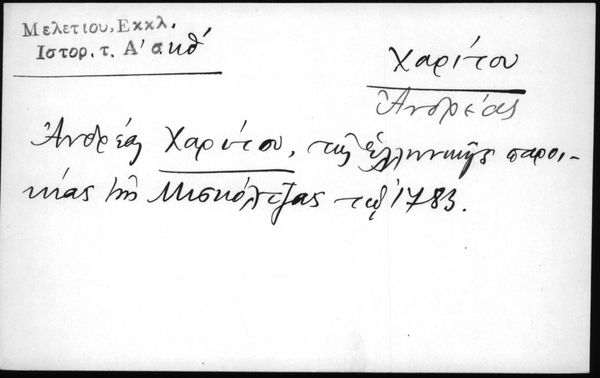 Μελετίου, Εκκλ.
Ιστορ. τ. Α' σ. κθ'
Χαρίτου
Ἀνδρέας
Ἀνδρέας Χαρίτου, τῆς ἑλληνικῆς παροι-
κίας τῆς Μισκόλτζας τῷ 1783.